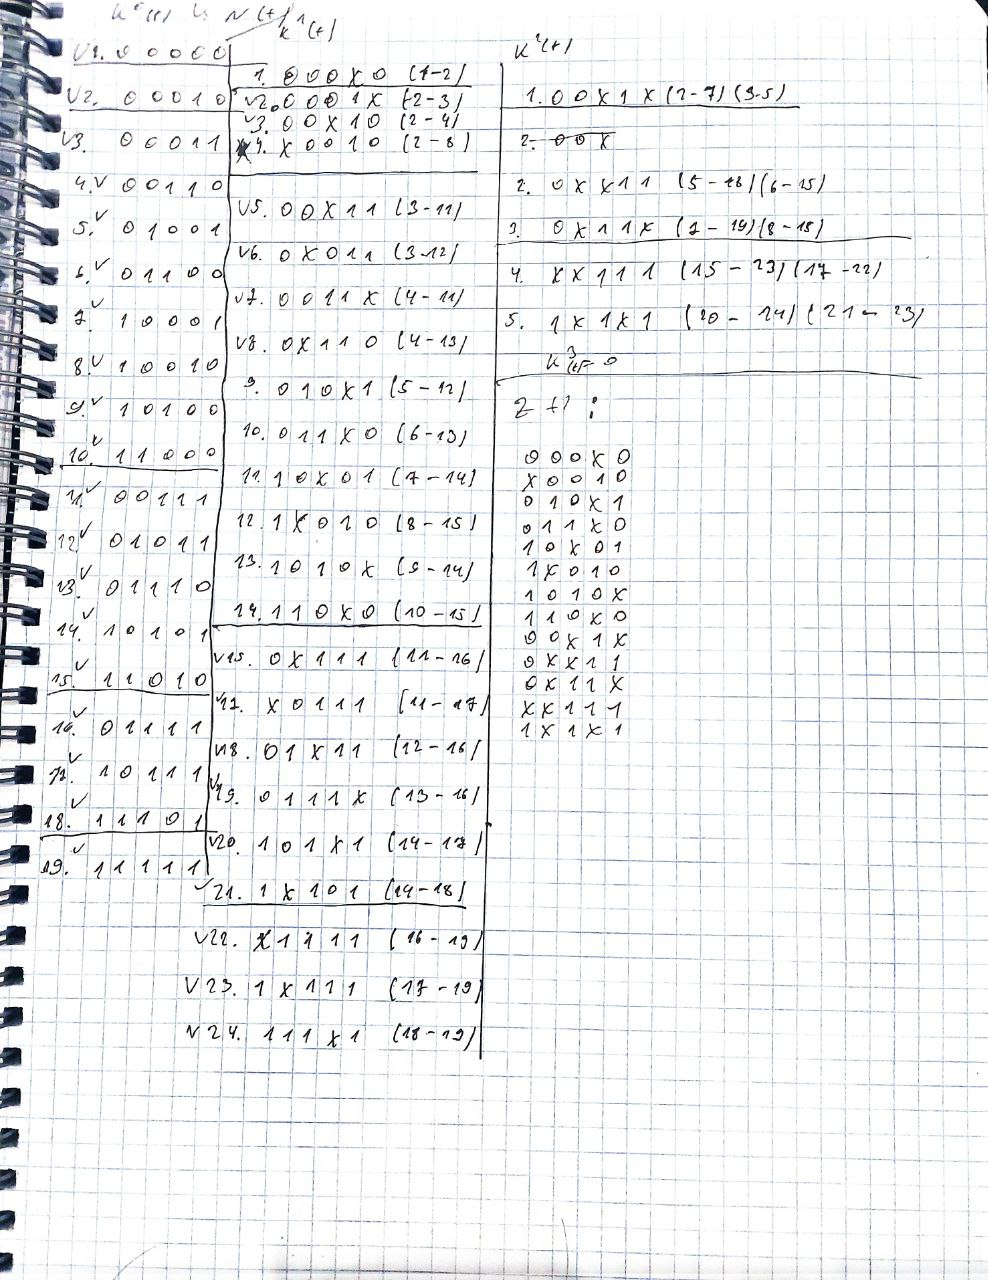 K⁰(f) U N(f)
V1. 0 0 0 0 0
V2. 0 0 0 1 0
V3. 0 0 0 1 1
4.V 0 0 1 1 0
5.V 0 1 0 0 1
6.V 0 1 1 0 0
7.V 1 0 0 0 1
8.V 1 0 0 1 0
9.V 1 0 1 0 0
10.V 1 1 0 0 0
11.V 0 0 1 1 1
12V 0 1 0 1 1
13.V 0 1 1 1 0
14.V 1 0 1 0 1
15.V 1 1 0 1 0
16.V 0 1 1 1 1
17.V 1 0 1 1 1
18.V 1 1 1 0 1
19.V 1 1 1 1 1
K¹(f)
1. 0 0 0 X 0 (1-2)
V2. 0 0 0 1 X (2-3)
V3. 0 0 X 1 0 (2-4)
4. X 0 0 1 0 (2-8)
V5. 0 0 X 1 1 (3-11)
V6. 0 X 0 1 1 (3-12)
V7. 0 0 1 1 X (4-11)
V8. 0 X 1 1 0 (4-13)
9. 0 1 0 X 1 (5-12)
10. 0 1 1 X 0 (6-13)
11. 1 0 X 0 1 (7-14)
12. 1 X 0 1 0 (8-15)
13. 1 0 1 0 X (9-14)
14. 1 1 0 X 0 (10-15)
V15. 0 X 1 1 1 (11-16)
V17. X 0 1 1 1 (11-17)
V18. 0 1 X 1 1 (12-16)
V19. 0 1 1 1 X (13-16)
V20. 1 0 1 X 1 (14-17)
V21. 1 X 1 0 1 (14-18)
V22. X 1 1 1 1 (16-19)
V23. 1 X 1 1 1 (17-19)
V24. 1 1 1 X 1 (18-19)
K²(f)
1. 0 0 X 1 X (2-7) (3-5)
2. 0 0 X
2. 0 X X 1 1 (5-18) (6-15)
3. 0 X 1 1 X (7-19) (8-15)
4. X X 1 1 1 (15-23) (17-22)
5. 1 X 1 X 1 (20-24) (21-23)
K³(f)=0
Z(f):
0 0 0 X 0
X 0 0 1 0
0 1 0 X 1
0 1 1 X 0
1 0 X 0 1
1 X 0 1 0
1 0 1 0 X
1 1 0 X 0
0 0 X 1 X
0 X X 1 1
0 X 1 1 X
X X 1 1 1
1 X 1 X 1